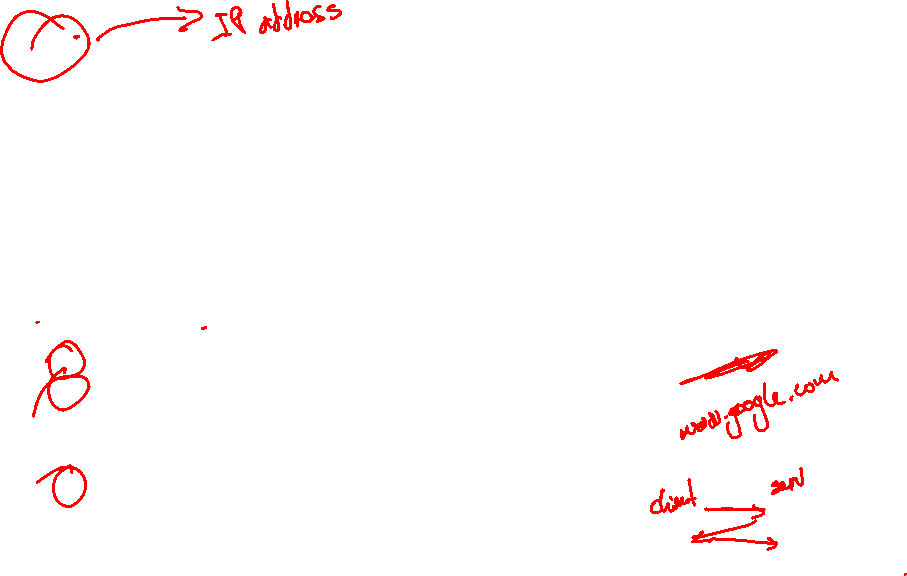 IP address
www.google.com
client